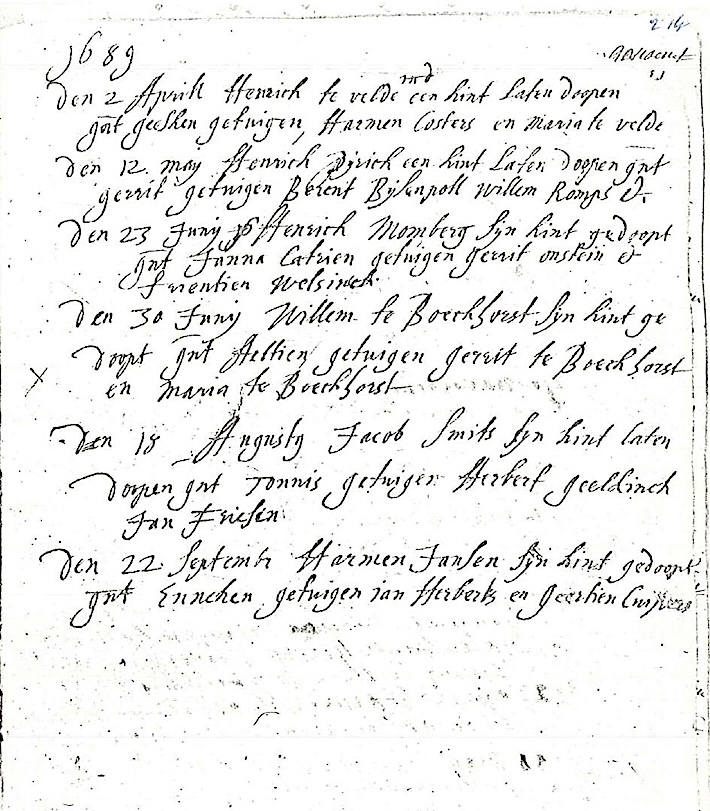 214
1689
Den 2 Aprill Henrich te velde een kint Laten Doopen
gnt geesken getuigen, Harmen Costers en Maria te velde
Den 12 may Henrich Dirich een kint Laten Doopen gnt
gerrit getuigen Berent Bijlenpoll Willem Romps &
Den 23 Junij Henrich Momberg sijn kint gedoopt
gnt Janna Catrien getuigen gerrit onstein &
Frientien Welsinck
Den 30 Junij Willem te Boeckhorst sijn kint ge
doopt gnt Aeltien getuigen gerrit te Boeckhorst
en Maria te Boeckhorst
Den 18 Augusty Jacob Smits sijn kint laten
Doopen gnt Tonnis getuigen Herbert geeldinck
Jan Friesin
Den 22 Septembr Harmen Jansen sijn kint gedoopt
gnt Enneken getuigen ian Herberts en Geertien Cuipers